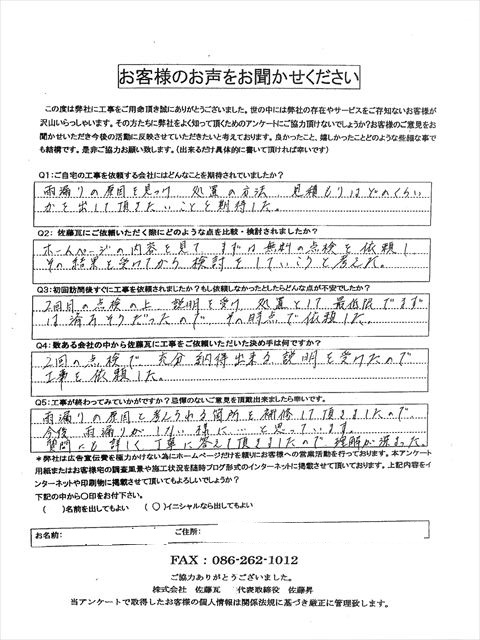 お客様のお声をお聞かせください
この度は弊社に工事をご用命頂き誠にありがとうございました。世の中には弊社の存在やサービスをご存知ないお客様が
沢山いらっしゃいます。その方たちに弊社をよく知って頂くためのアンケートにご協力頂けないでしょうか?お客様のご意見をお
聞かせいただき今後の活動に反映させていただきたいと考えております。良かったこと、嬉しかったことどのような些細な事で
も結構です。是非ご協力お願い致します。(出来るだけ具体的に書いて頂ければ幸いです)
Q1:ご自宅の工事を依頼する会社にはどんなことを期待されていましたか?
雨漏りの原因を見つけ 処置の方法 見積もりはどのくらい
かを出して頂きたいことを期待した。
Q2: 佐藤瓦にご依頼いただく際にどのような点を比較・検討されましたか?
ホームページの内容を見て まずは無料の点検を依頼し
その結果を受けてから検討をしていこうと考えた。
Q3:初回訪問後すぐに工事依頼されましたか?もし依頼しなかったとしたらどんな点が不安でしたか?
2回目の点検の上 説明を受け 処置として最低限でまず
は済みそうだったので その時点で依頼した。
Q4:数ある会社の中から佐藤瓦に工事をご依頼いただいた決め手は何ですか?
2回の点検で 充分納得出来る説明を受けたので
工事を依頼した。
Q5:工事が終わってみていかがですか?忌憚のないご意見を頂戴出来ましたら幸いです。
雨漏りの原因と考えられる箇所を補修して頂きましたので
今後 雨漏りがしない様に…と思っています。
質問にも詳しく丁寧に答えて頂きましたので理解が深まった。
*弊社は広告宣伝費を極力かけない為にホームページだけを頼りにお客様への営業活動を行っております。本アンケート
用紙またはお客様宅の調査風景や施工状況を随時ブログ形式のインターネットに掲載させて頂いております。上記内容をイ
ンターネットや印刷物に掲載させて頂いてもよろしいでしょうか?
下記の中から○印をお付下さい。
( )名前を出してもよい (○)イニシャルなら出してもよい
お名前: ご住所:
FAX:086-262-1012
ご協力ありがとうございました。
株式会社 佐藤瓦 代表取締役 佐藤昇
当アンケートで取得したお客様の個人情報は関係法規に基づき厳正に管理致します。